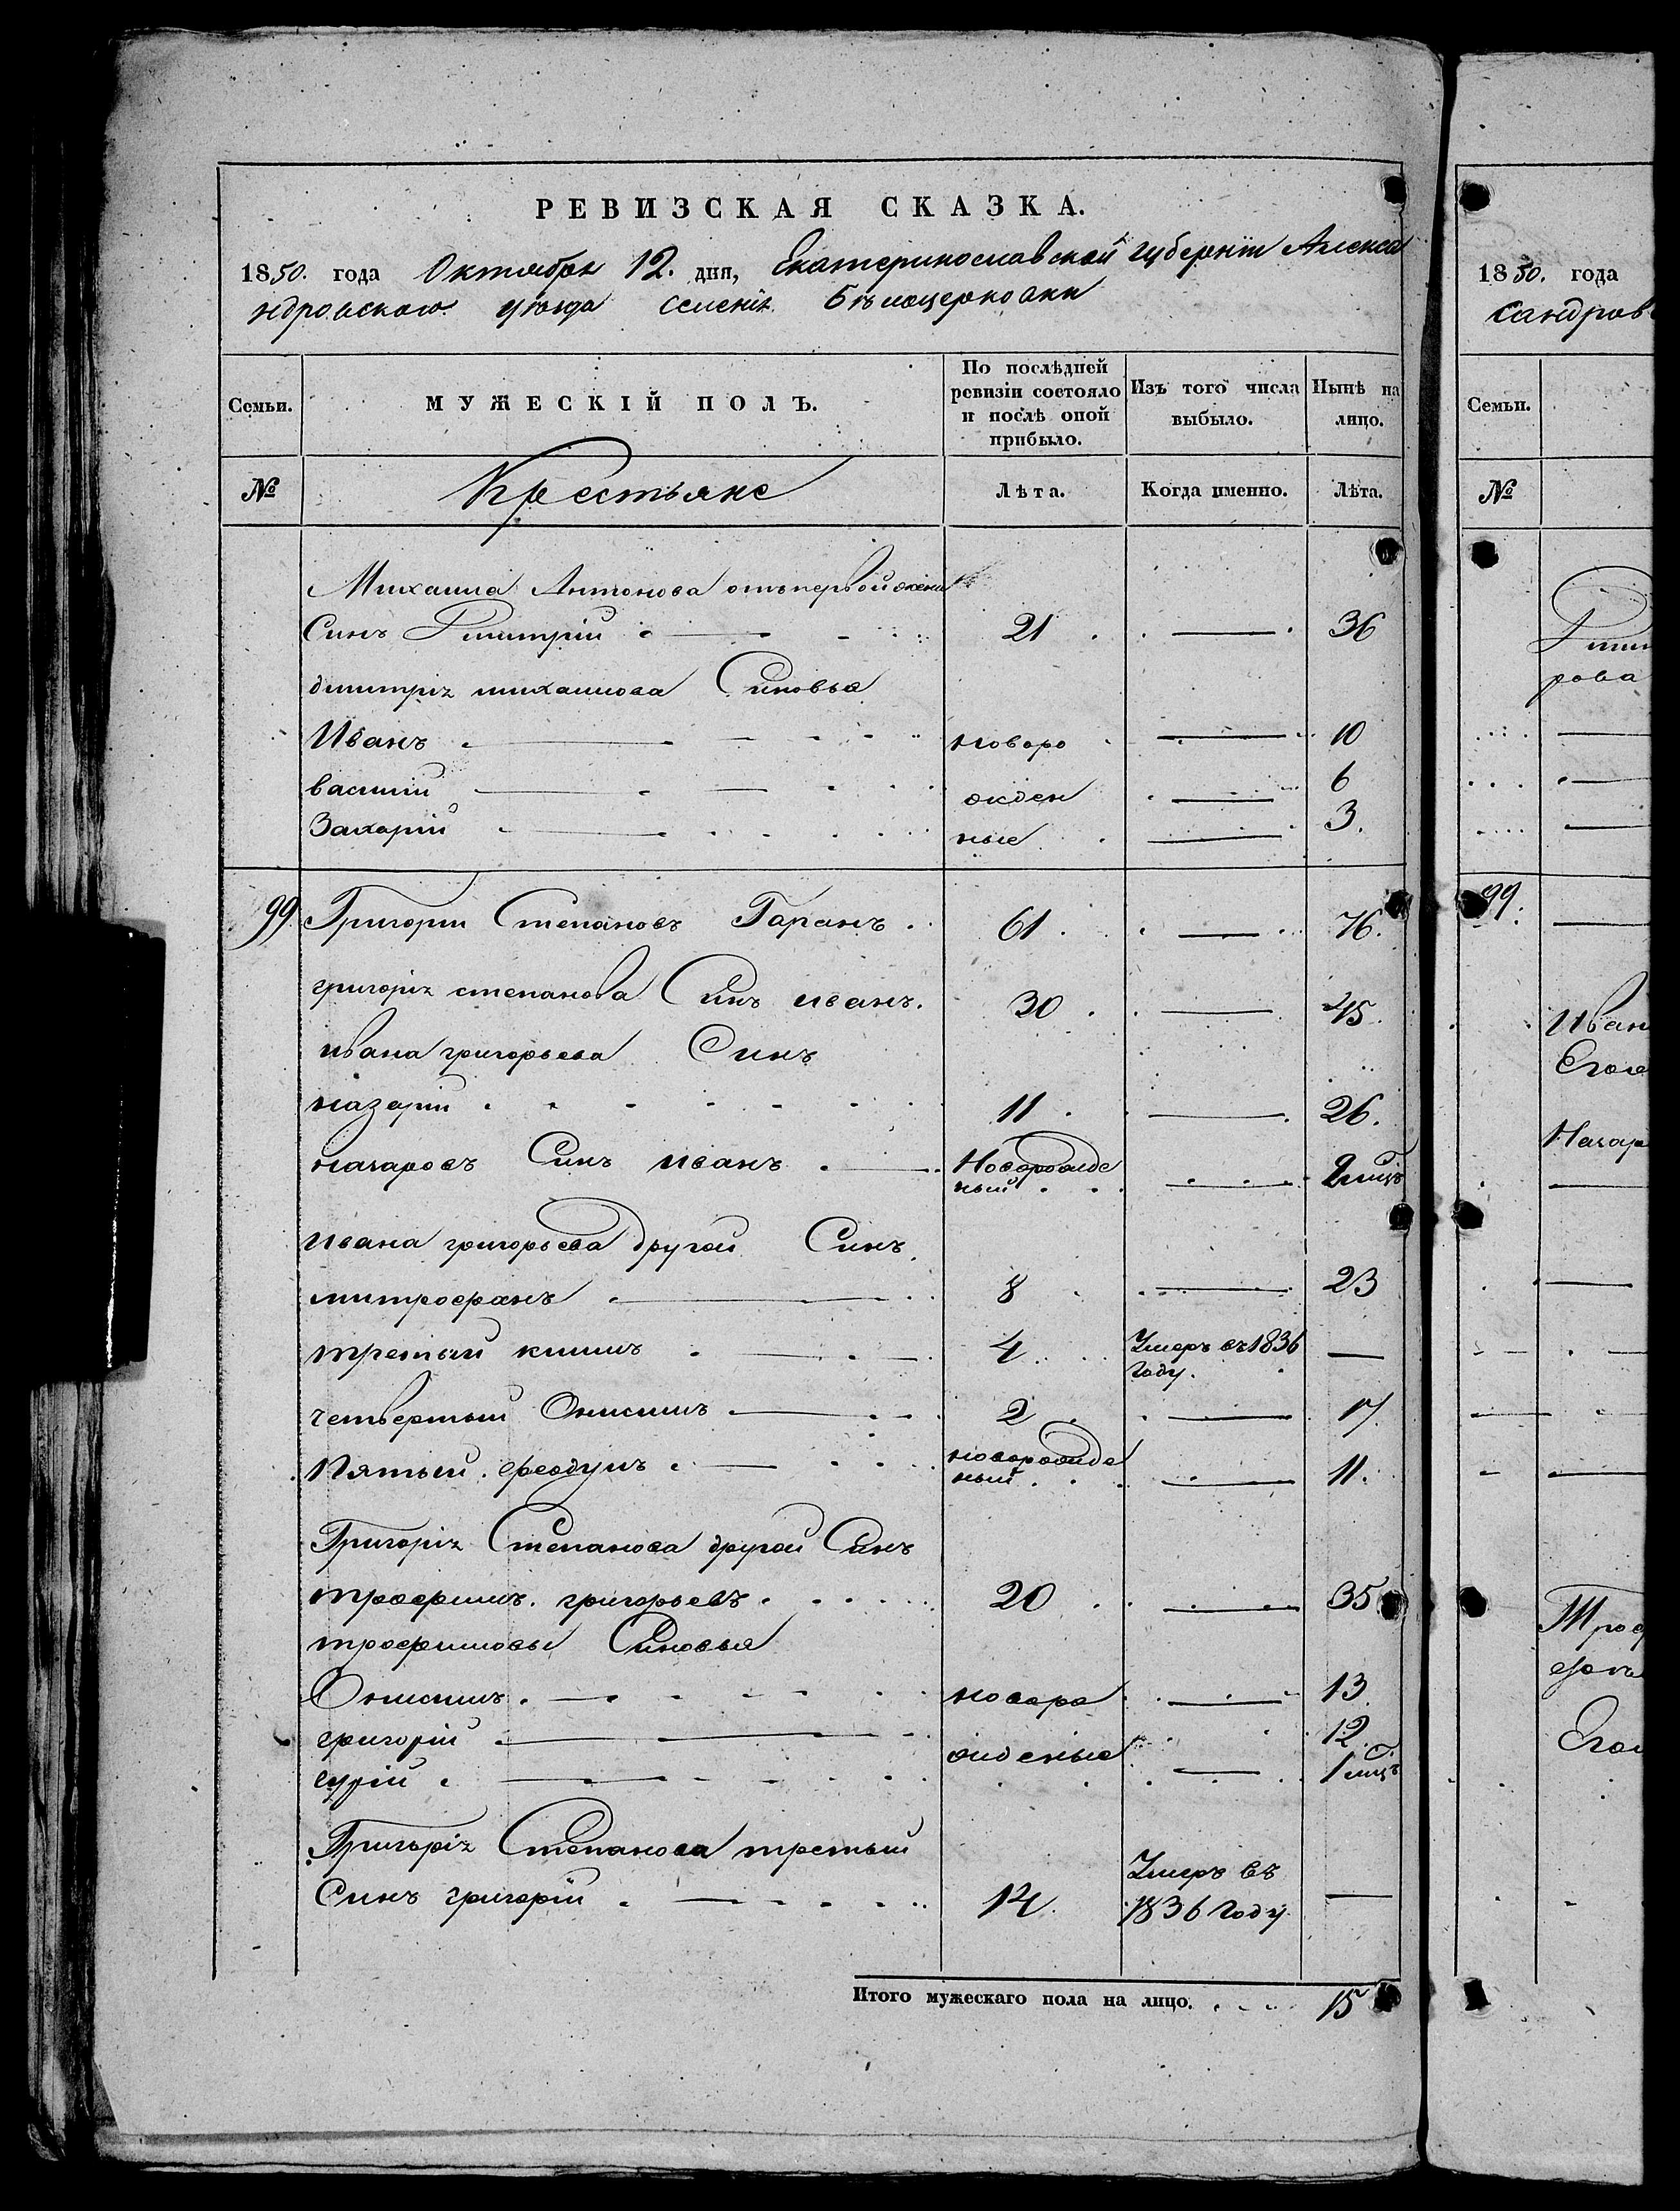 РЕВИЗСКАЯ СКАЗКА.
1850. года Октября 12. дня, Екатеринославской губерніи Алекса
ндровского уѣзда селенія Бѣлоцерковки
Семьи.
МУЖЕСКІЙ ПОЛЪ.
По послѣдней ревизіи состояло и послѣ оной прибыло.
Изъ того числа выбыло.
Нынѣ на лицо.
№ Крестьяне Лѣта. Когда именно. Лѣта.
Михаила Антонова отъ первой жены
Синъ Дмитрій 21 36
дмитрія михаилова Синовья
Иванъ новоро 10
василій жден 6
Захарій ные 3.
99 Григори Степановъ Гаранъ 61 76.
григорія степанова Синъ иванъ. 30 45.
ивана григорьева Синъ
назарій 11 26.
назаровъ Синъ иванъ Новорожде 2 мцъ
ный
ивана григорьева другой Синъ
митрофанъ 8 23
третьий климъ 4 Умеръ въ 1836 —
году.
четвертый Онисимъ 2 17
пятый феодулъ новорожде 11.
ный
Григорія Степанова другой Синъ
трофимъ григорьевъ 20 35
трофимовы Синовья
Онисимъ новоро 13.
григорій жденые 12
гурій 1 мцъ
Григорія Степанова третьий Умеръ въ
Синъ григорій 14. 1836 году —
Итого мужескаго пола на лицо. 15
1850. года
сандров
Семьи.
№
Дми
рова
99.
Иван
Его
Назар
Троф
Его